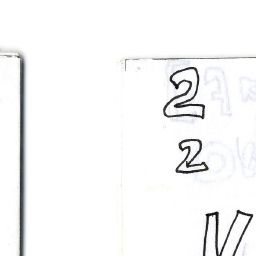 2
2
V